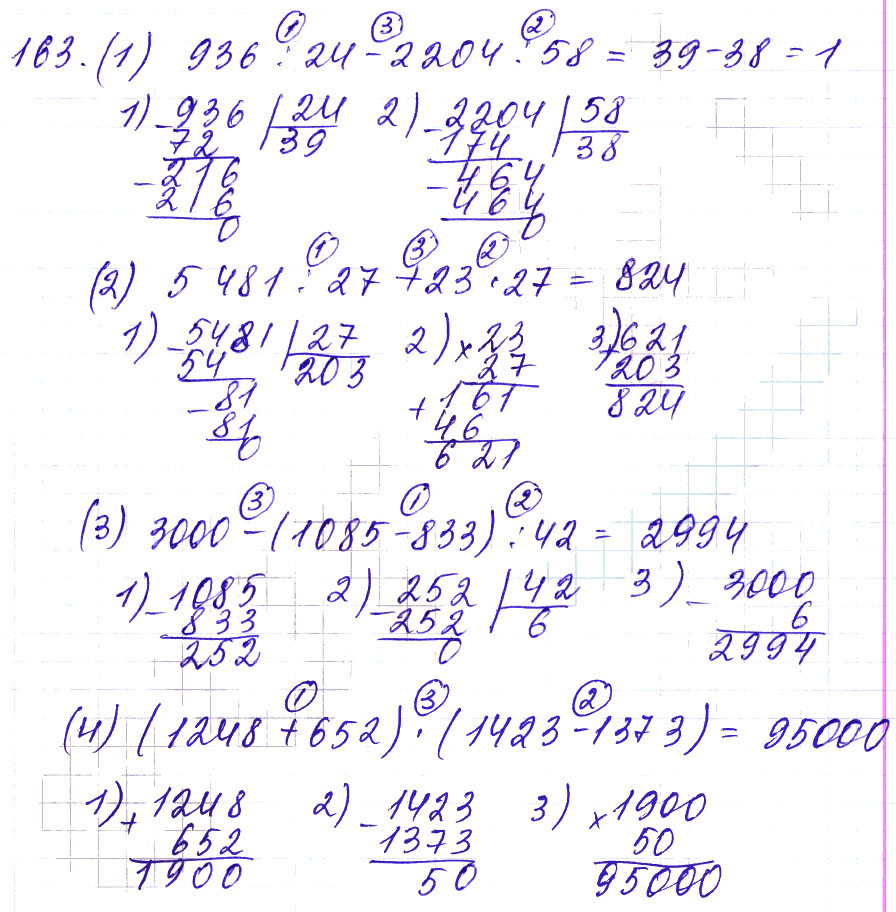 ① ③ ②
163. (1) 936 : 24 - 2204 : 58 = 39 - 38 = 1
1) - 936 | 24 2) - 2204 | 58
72 39 174 38
- 216 - 464
216 464
0 0
① ③ ②
(2) 5 481 : 27 + 23 · 27 = 824
1) - 5481 | 27 2) × 23 3) + 621
54 203 27 203
- 81 + 161 824
81 46
0 621
③ ① ②
(3) 3000 - (1085 - 833) : 42 = 2994
1) - 1085 2) - 252 | 42 3) - 3000
833 252 6 6
252 0 2994
① ③ ②
(4) (1248 + 652) · (1423 - 1373) = 95000
1) + 1248 2) - 1423 3) × 1900
652 1373 50
1900 50 95000